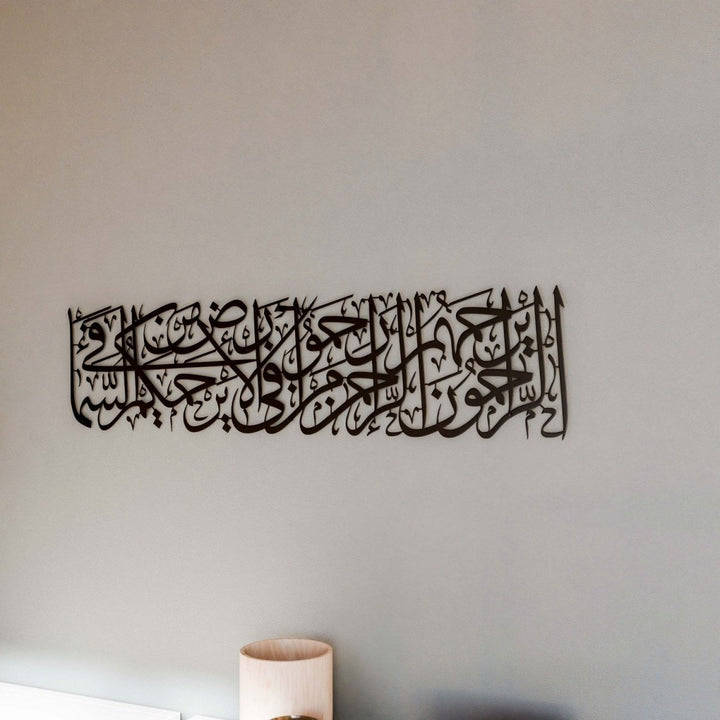 الراحمون يرحمهم الرحمن ارحموا من في الارض يرحمكم من في السماء